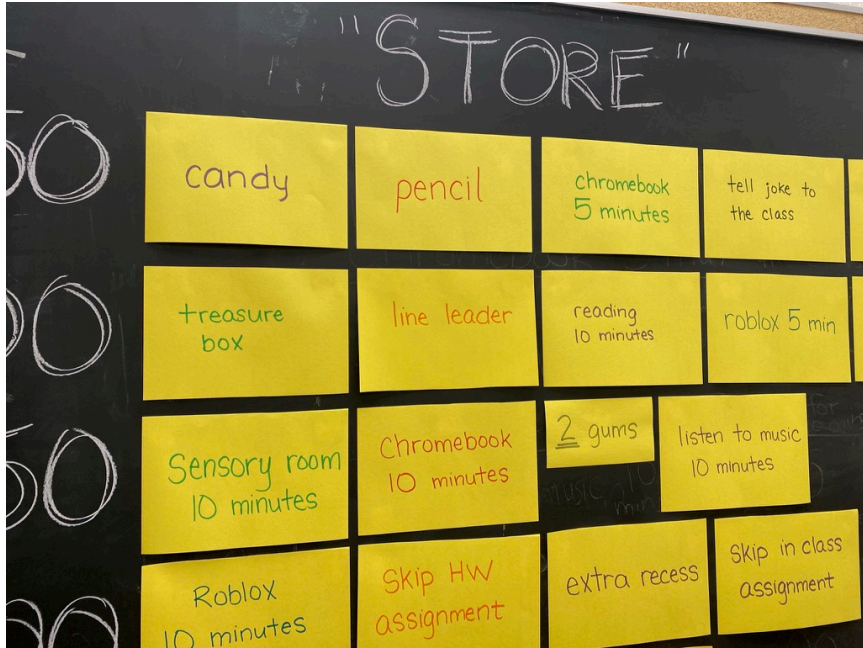 "STORE"
50
candy
pencil
chromebook
5 minutes
tell joke to
the class
00
treasure
box
line leader
reading
10 minutes
roblox 5 min
50
Sensory room
10 minutes
Chromebook
10 minutes
2 gums
listen to music
10 minutes
00
Roblox
10 minutes
Skip HW
assignment
extra recess
Skip in class
assignment